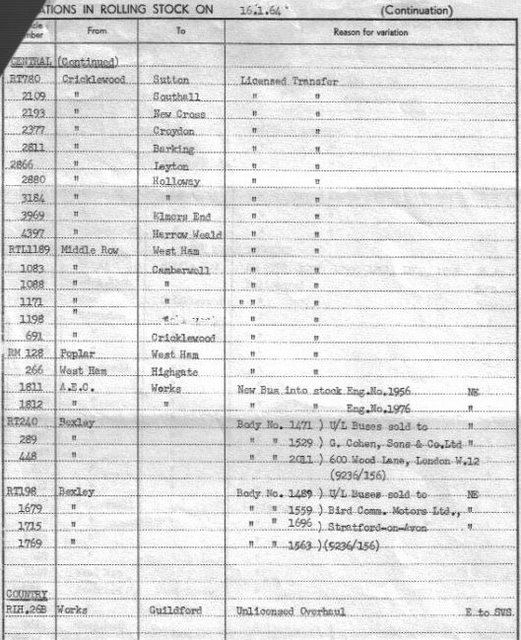 ATIONS IN ROLLING STOCK ON 16.1.64 (Continuation)
mber From To Reason for variation
CENTRAL (Continued)
RT780 Cricklewood Sutton Licensed Transfer
2109 " Southall " "
2193 " New Cross " "
2377 " Croydon " "
2811 " Barking " "
2866 " Leyton " "
2880 " Holloway " "
3184 " " " "
3969 " Elmers End " "
4397 " Harrow Weald " "
RTL1189 Middle Row West Ham " "
1083 " Camberwell " "
1088 " " " "
1171 " " " " "
1198 " " "
691 " Cricklewood " "
RM 128 Poplar West Ham " "
266 West Ham Highgate " "
1811 A.E.C. Works New Bus into stock Eng.No.1956 NE
1812 " " " Eng.No.1976 "
RT240 Bexley Body No. 1471 ) U/L Buses sold to "
289 " " " 1529 ) G. Cohen, Sons & Co.Ltd "
448 " " " 2011 ) 600 Wood Lane, London W.12 "
(9236/156)
RT198 Bexley Body No. 1489 ) U/L Buses sold to NE
1679 " " " 1559 ) Bird Comm. Motors Ltd., "
1715 " " " 1696 ) Stratford-on-Avon "
1769 " " " 1563 ) (5236/156)
COUNTRY
RLH.26B Works Guildford Unlicensed Overhaul E to SVS.